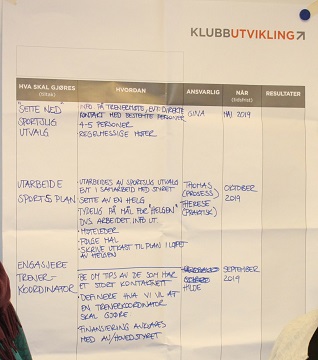 KLUBBUTVIKLING
HVA SKAL GJØRES HVORDAN ANSVARLIG NÅR RESULTATER
(tiltak) (tidsfrist)
"SETTE NED"
SPORTSLIG
UTVALG
INFO PÅ TRENERMØTE, EVT. DIREKTE
KONTAKT MED BESTEMTE PERSONER
4-5 PERSONER
REGELMESSIGE MØTER
GINA
MAI 2019
UTARBEIDE
SPORTSPLAN
UTARBEIDES AV SPORTSLIG UTVALG
EVT I SAMARBEID MED STYRET
SETTE AV EN HELG
TYDELIG PÅ MÅL FOR "HELGEN"
DVS ARBEIDET INFO UT.
• MØTELEDER
• FØLGE MAL
• SKRIVE UTKAST TIL PLAN I LØPET
AV HELGEN
THOMAS
(PROSESS)
THERESE
(PRAKTISK)
OKTOBER
2019
ENGASJERE
TRENER-
KOORDINATOR
• BE OM TIPS AV DE SOM HAR
ET STORT KONTAKTNETT
• DEFINERE HVA VI VIL AT
EN TRENERKOORDINATOR
SKAL GJØRE
• FINANSIERING AVKLARES
MED AU/HOVEDSTYRET
HILDE
SEPTEMBER
2019